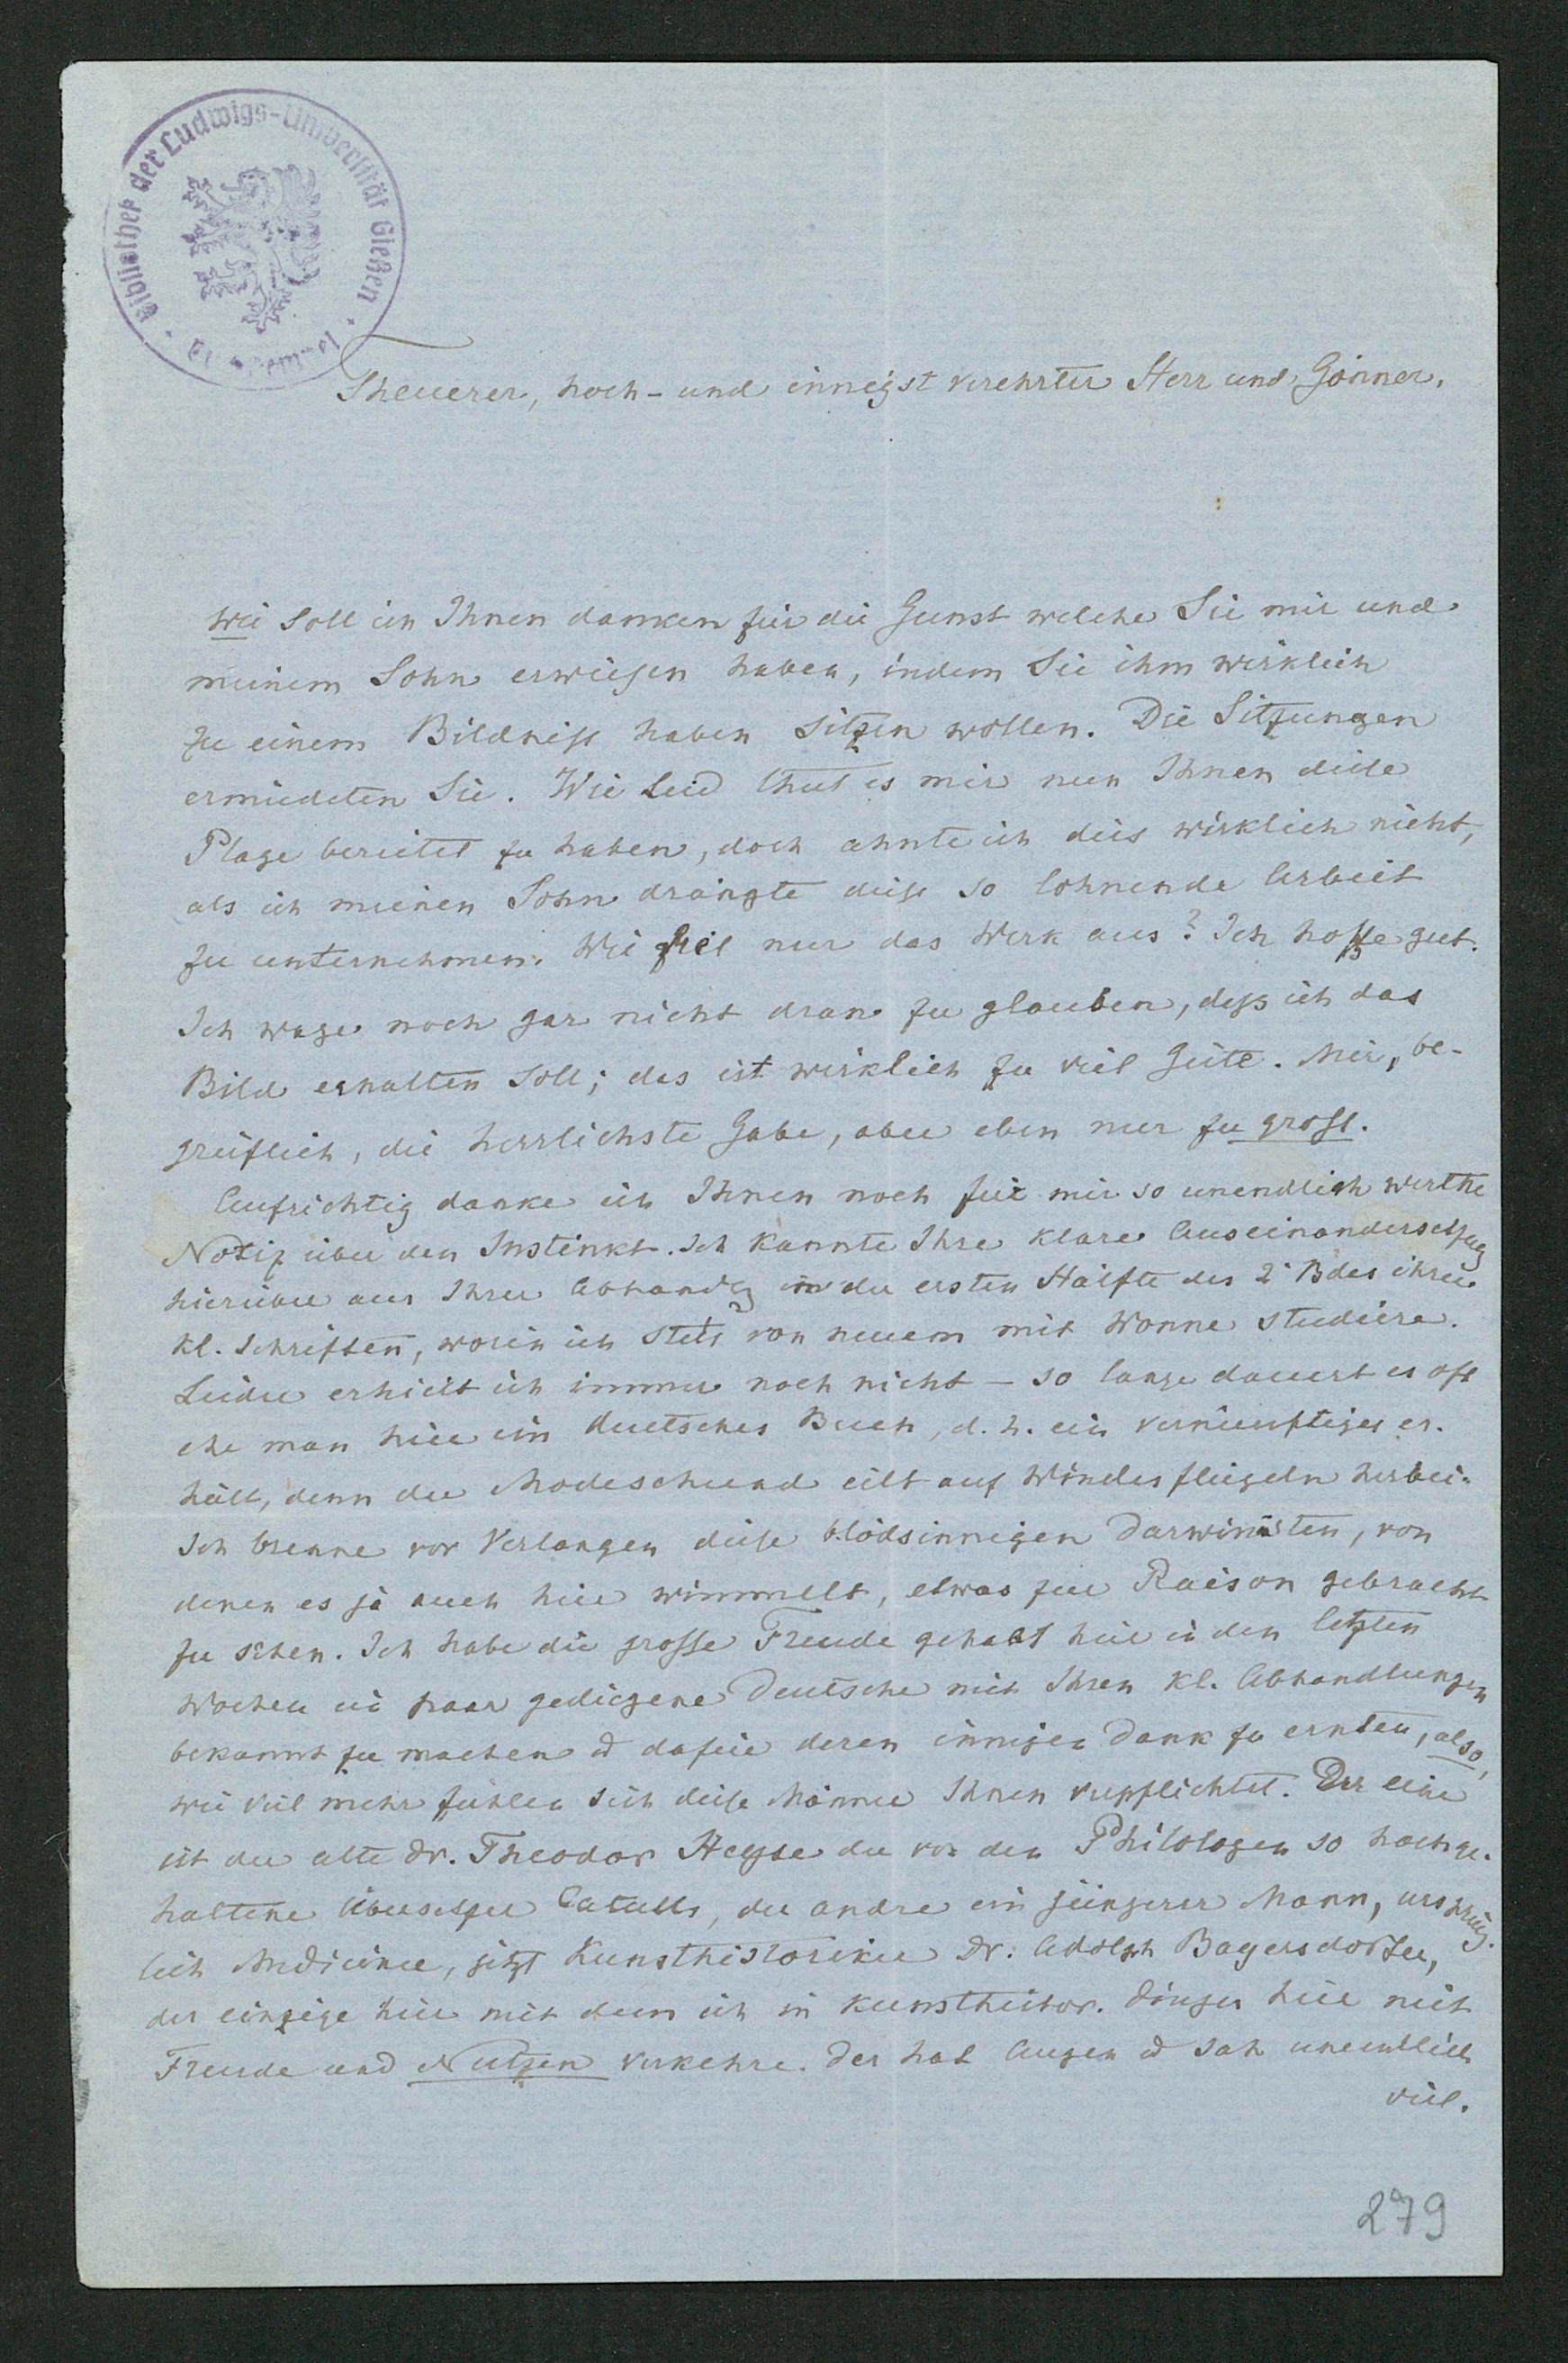 Bibliothek der Ludwigs-Universität Gießen
Theuerer, hoch- und innigst verehrter Herr und Gönner,
Wie soll ich Ihnen danken für die Gunst welche Sie mir und
meinem Sohn erwiesen haben, indem Sie ihm wirklich
zu einem Bildniss haben sitzen wollen. Die Sitzungen
ermüdeten Sie. Wie Leid thut es mir nun Ihnen diese
Plage bereitet zu haben, doch ahnte ich dies wirklich nicht,
als ich meinen Sohn drängte diese so lohnende Arbeit
zu unternehmen. Wie fiel nur das Werk aus? Ich hoffe gut.
Ich wage noch gar nicht dran zu glauben, dass ich das
Bild erhalten soll; das ist wirklich zu viel Güte. Mir, be-
greiflich, die herrlichste Gabe, aber eben nur zu gross.
Aufrichtig danke ich Ihnen noch für mir so unendlich werthe
Notiz über den Instinkt. Ich kannte Ihre klare Auseinandersetzg
hierüber aus Ihrer Abhandlg in der ersten Hälfte des 2. Bdes ihrer
kl. Schriften, worin ich stets von neuem mit Wonne studiere.
Leider erhielt ich immer noch nicht – so lange dauert es oft
ehe man hier ein deutsches Buch, d. h. ein vernünftiges er-
hält, denn der Modeschund eilt auf Windesflügeln herbei.
Ich brenne vor Verlangen diese blödsinnigen Darwinisten, von
denen es ja auch hier wimmelt, etwas zur Raison gebracht
zu sehen. Ich habe die grosse Freude gehabt hier in den letzten
Wochen ein paar gediegene Deutsche mit Ihren kl. Abhandlungen
bekannt zu machen u dafür deren innigen Dank zu ernten, also,
wie viel mehr fühlen sich diese Männer Ihnen verpflichtet. Der eine
ist der alte Dr. Theodor Heyse der von den Philologen so hochge-
haltene Übersetzer Catulls, der andre ein jüngerer Mann, ursprüng-
lich Mediciner, jetzt Kunsthistoriker Dr. Adolph Bayersdorfer,
der einzige hier mit dem ich in kunsthistor. Dingen hier mit
Freude und Nutzen verkehre. Der hat Augen u sah unendlich
viel.
279